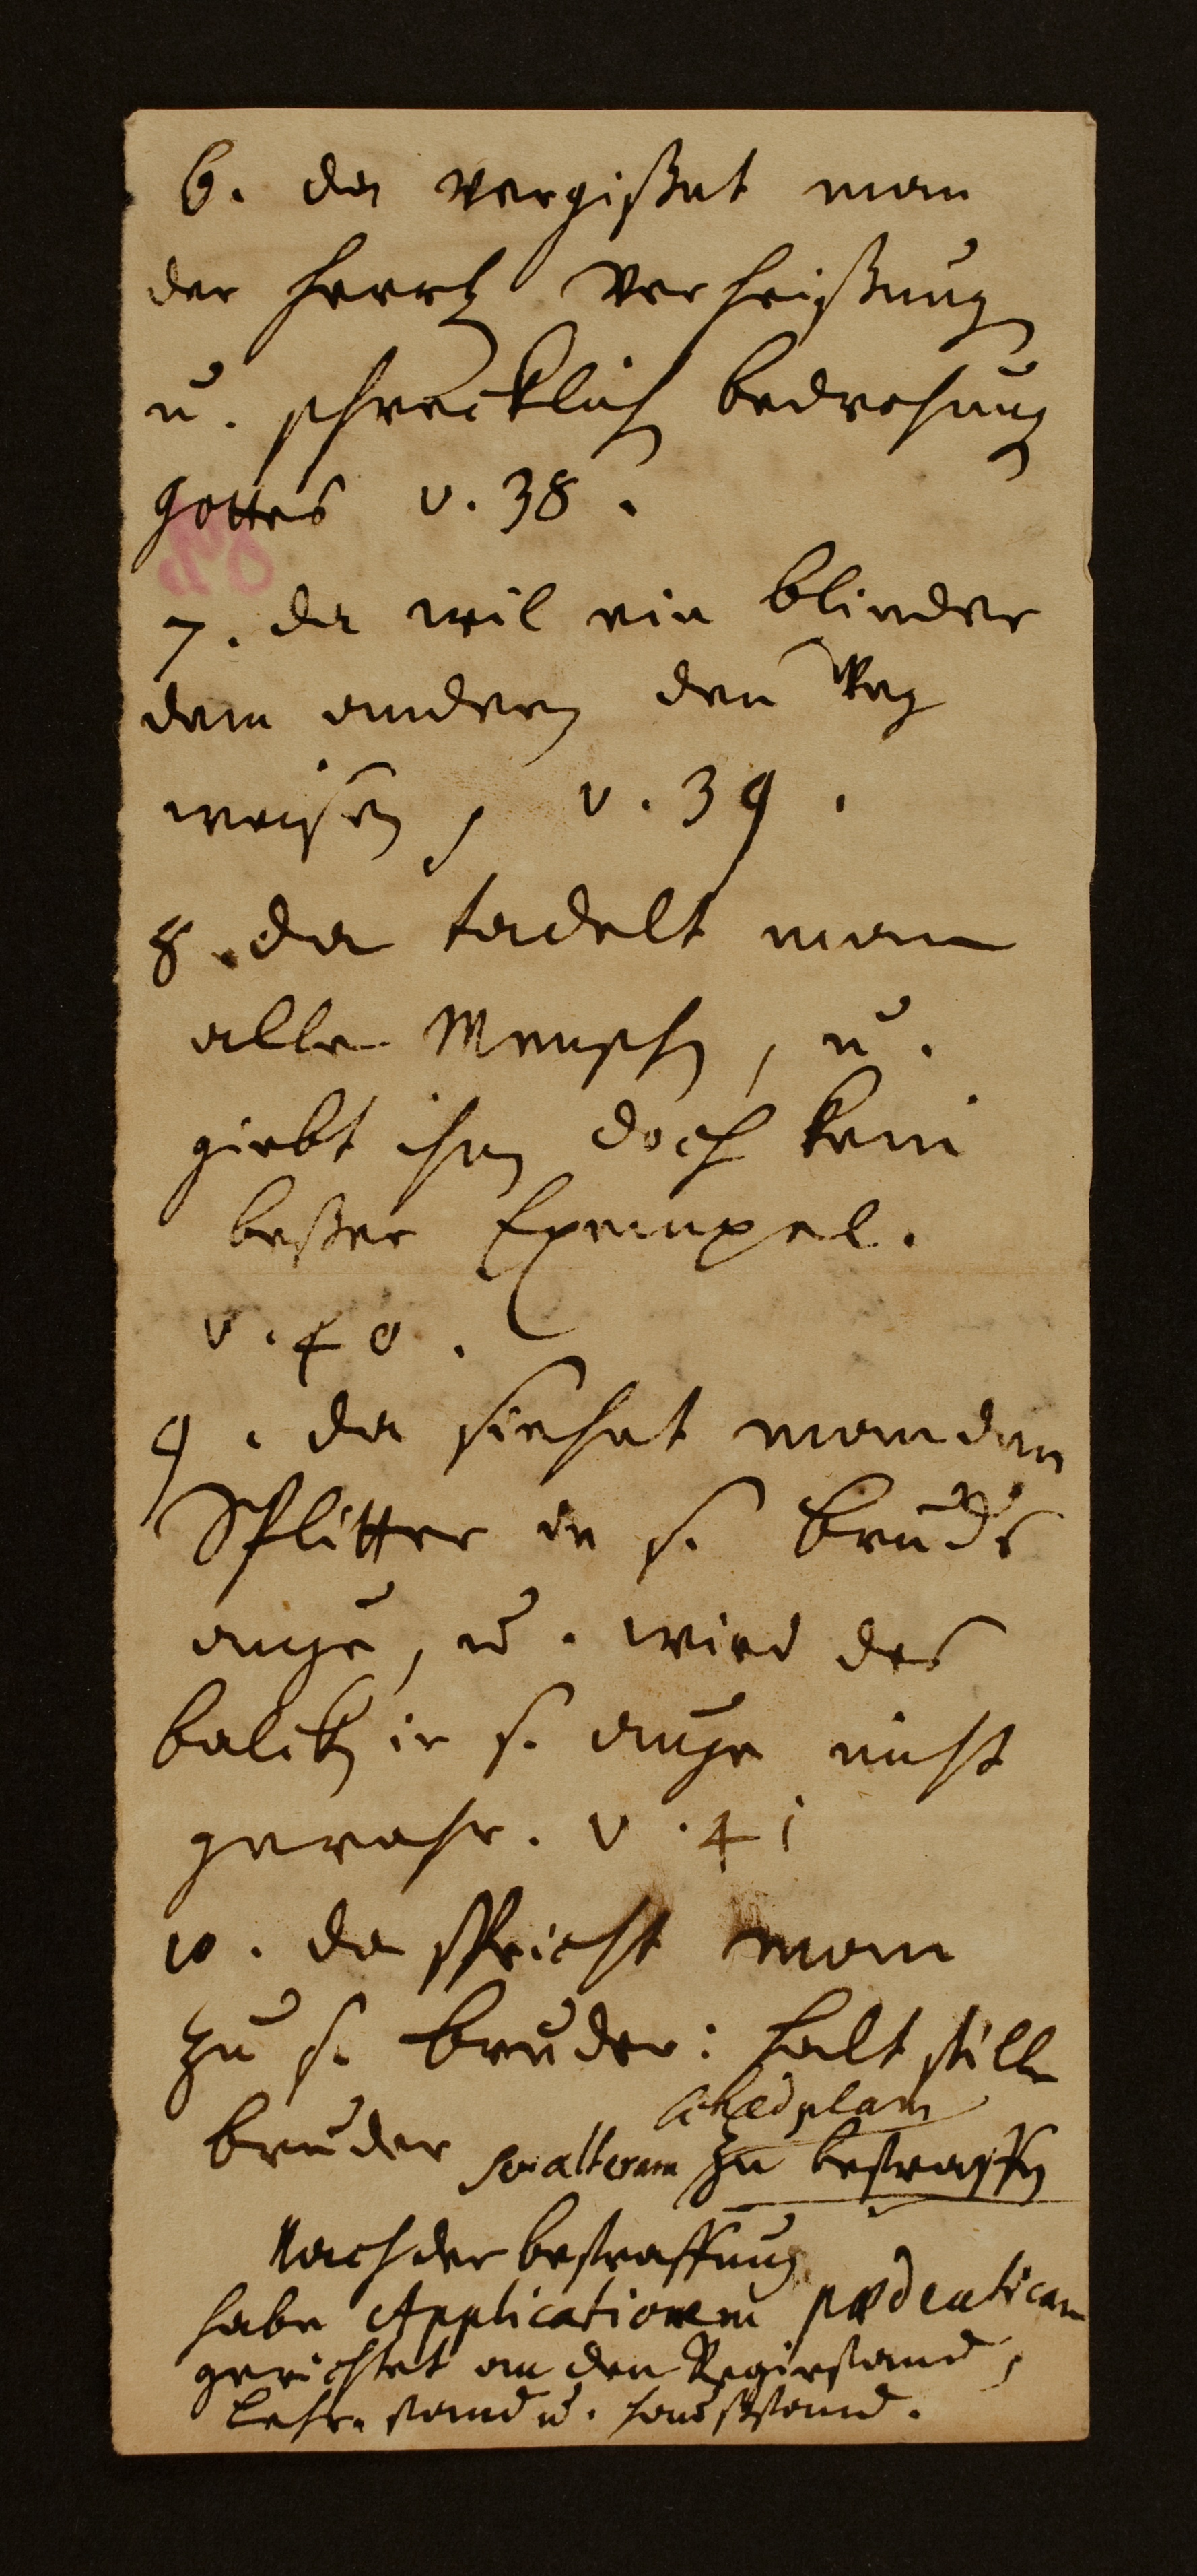 6. da vergißet man
der herrl. Verheißung
u. schrecklich bedrohung
gottes v. 38.
7. da wil ein blinder
dem andern den Weg
weisen, v. 39.
8. da tadelt man
alle Menschen, u.
giebt ihnen doch kein
beßer Exempel.
v. 40.
9. da siehet man den
Splitter in s. bruders
auge, u. wird des
balken in s. auge nicht
gewahr. v. 41
10. da spricht man
zu s. bruder: halt stille
bruder
zu bestraffen
Nach der bestraffung
habe Applicationem pædeuticam
gerichtet an den Regirstand,
Lehr-stand u. haußstand.